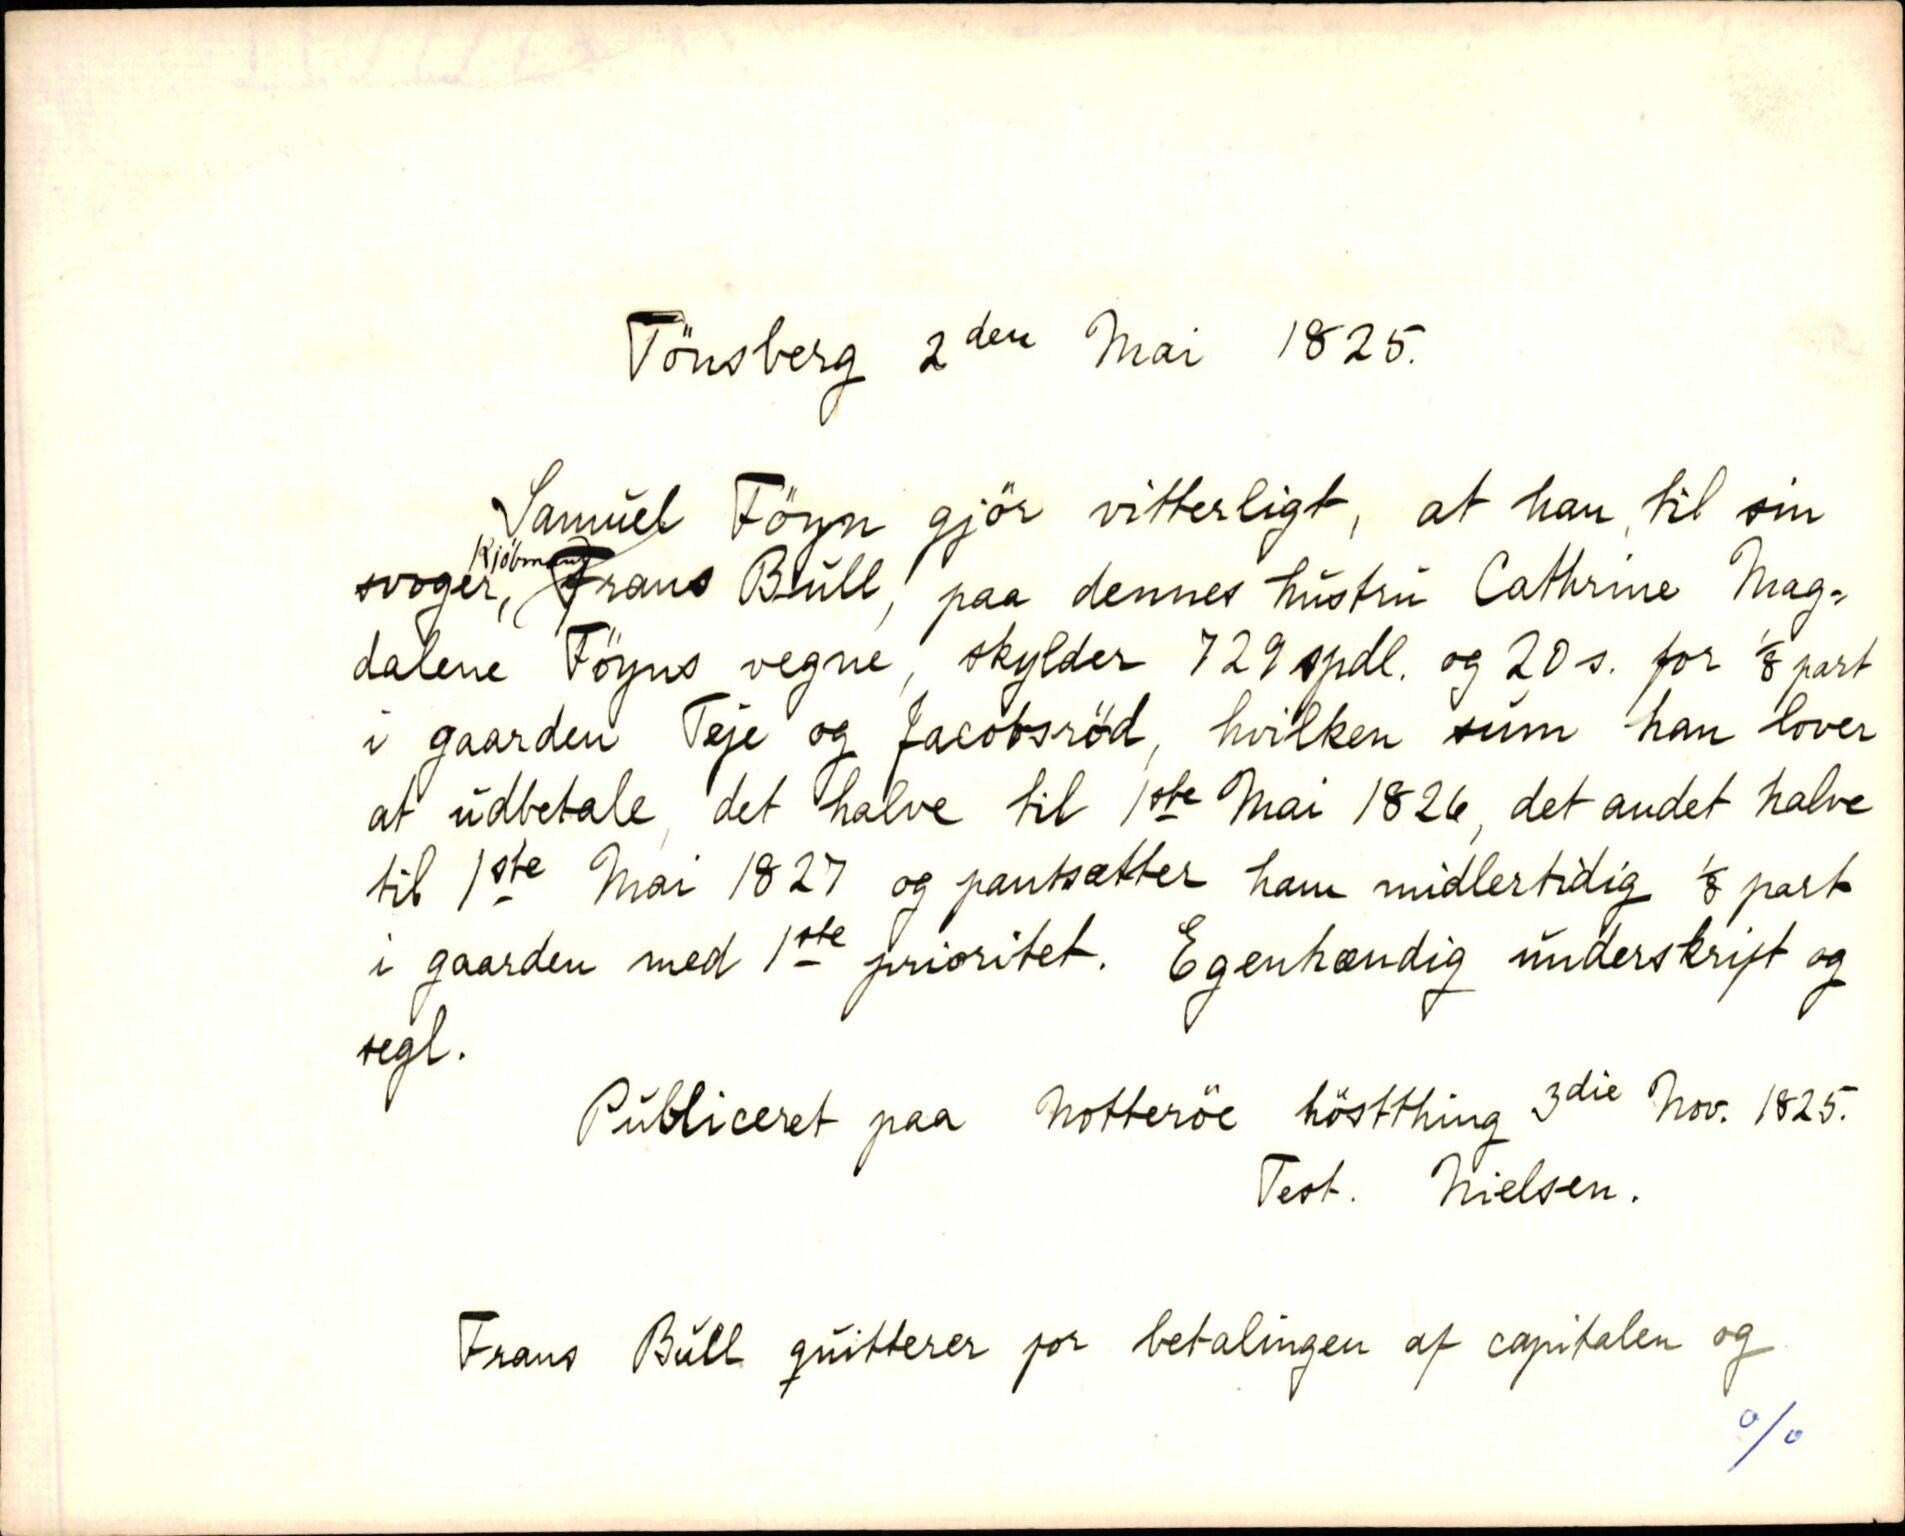 Tönsberg 2den Mai 1825.
Samuel Föyn gjör vitterligt, at han, til sin
svoger, Kjöbmand Frans Bull, paa dennes hustru Cathrine Mag-
dalene Föyns vegne, skylder 729 spdl. og 20 s. for 1/8 part
i gaarden Teje og Jacobsröd, hvilken sum han lover
at udbetale, det halve til 1ste Mai 1826, det andet halve
til 1ste Mai 1827 og pantsætter ham midlertidig 1/8 part
i gaarden med 1ste prioritet. Egenhændig underskrift og
segl.
Publiceret paa Notteröe höstthing 3die Nov. 1825.
Test. Nielsen.
Frans Bull quitterer for betalingen af capitalen og
o/o